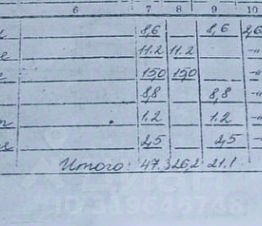 6 7 8 9 10
8,6 8,6 2,6
11.2 11.2 -"-
15,0 15,0 -"-
8,8 8,8 -"-
1.2 1.2 -"-
2,5 2,5 -"-
Итого: 47.3 26,2 21.1